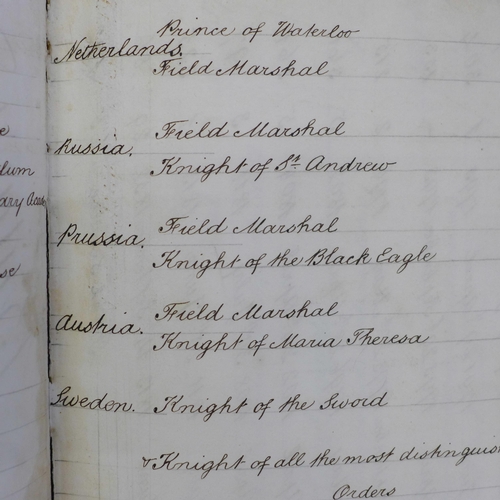 Prince of Waterloo
Netherlands.
Field Marshal
Field Marshal
Russia.
Knight of St. Andrew
Field Marshal
Prussia.
Knight of the Black Eagle
Field Marshal
Austria.
Knight of Maria Theresa
Sweden. Knight of the Sword
& Knight of all the most distinguis
Orders